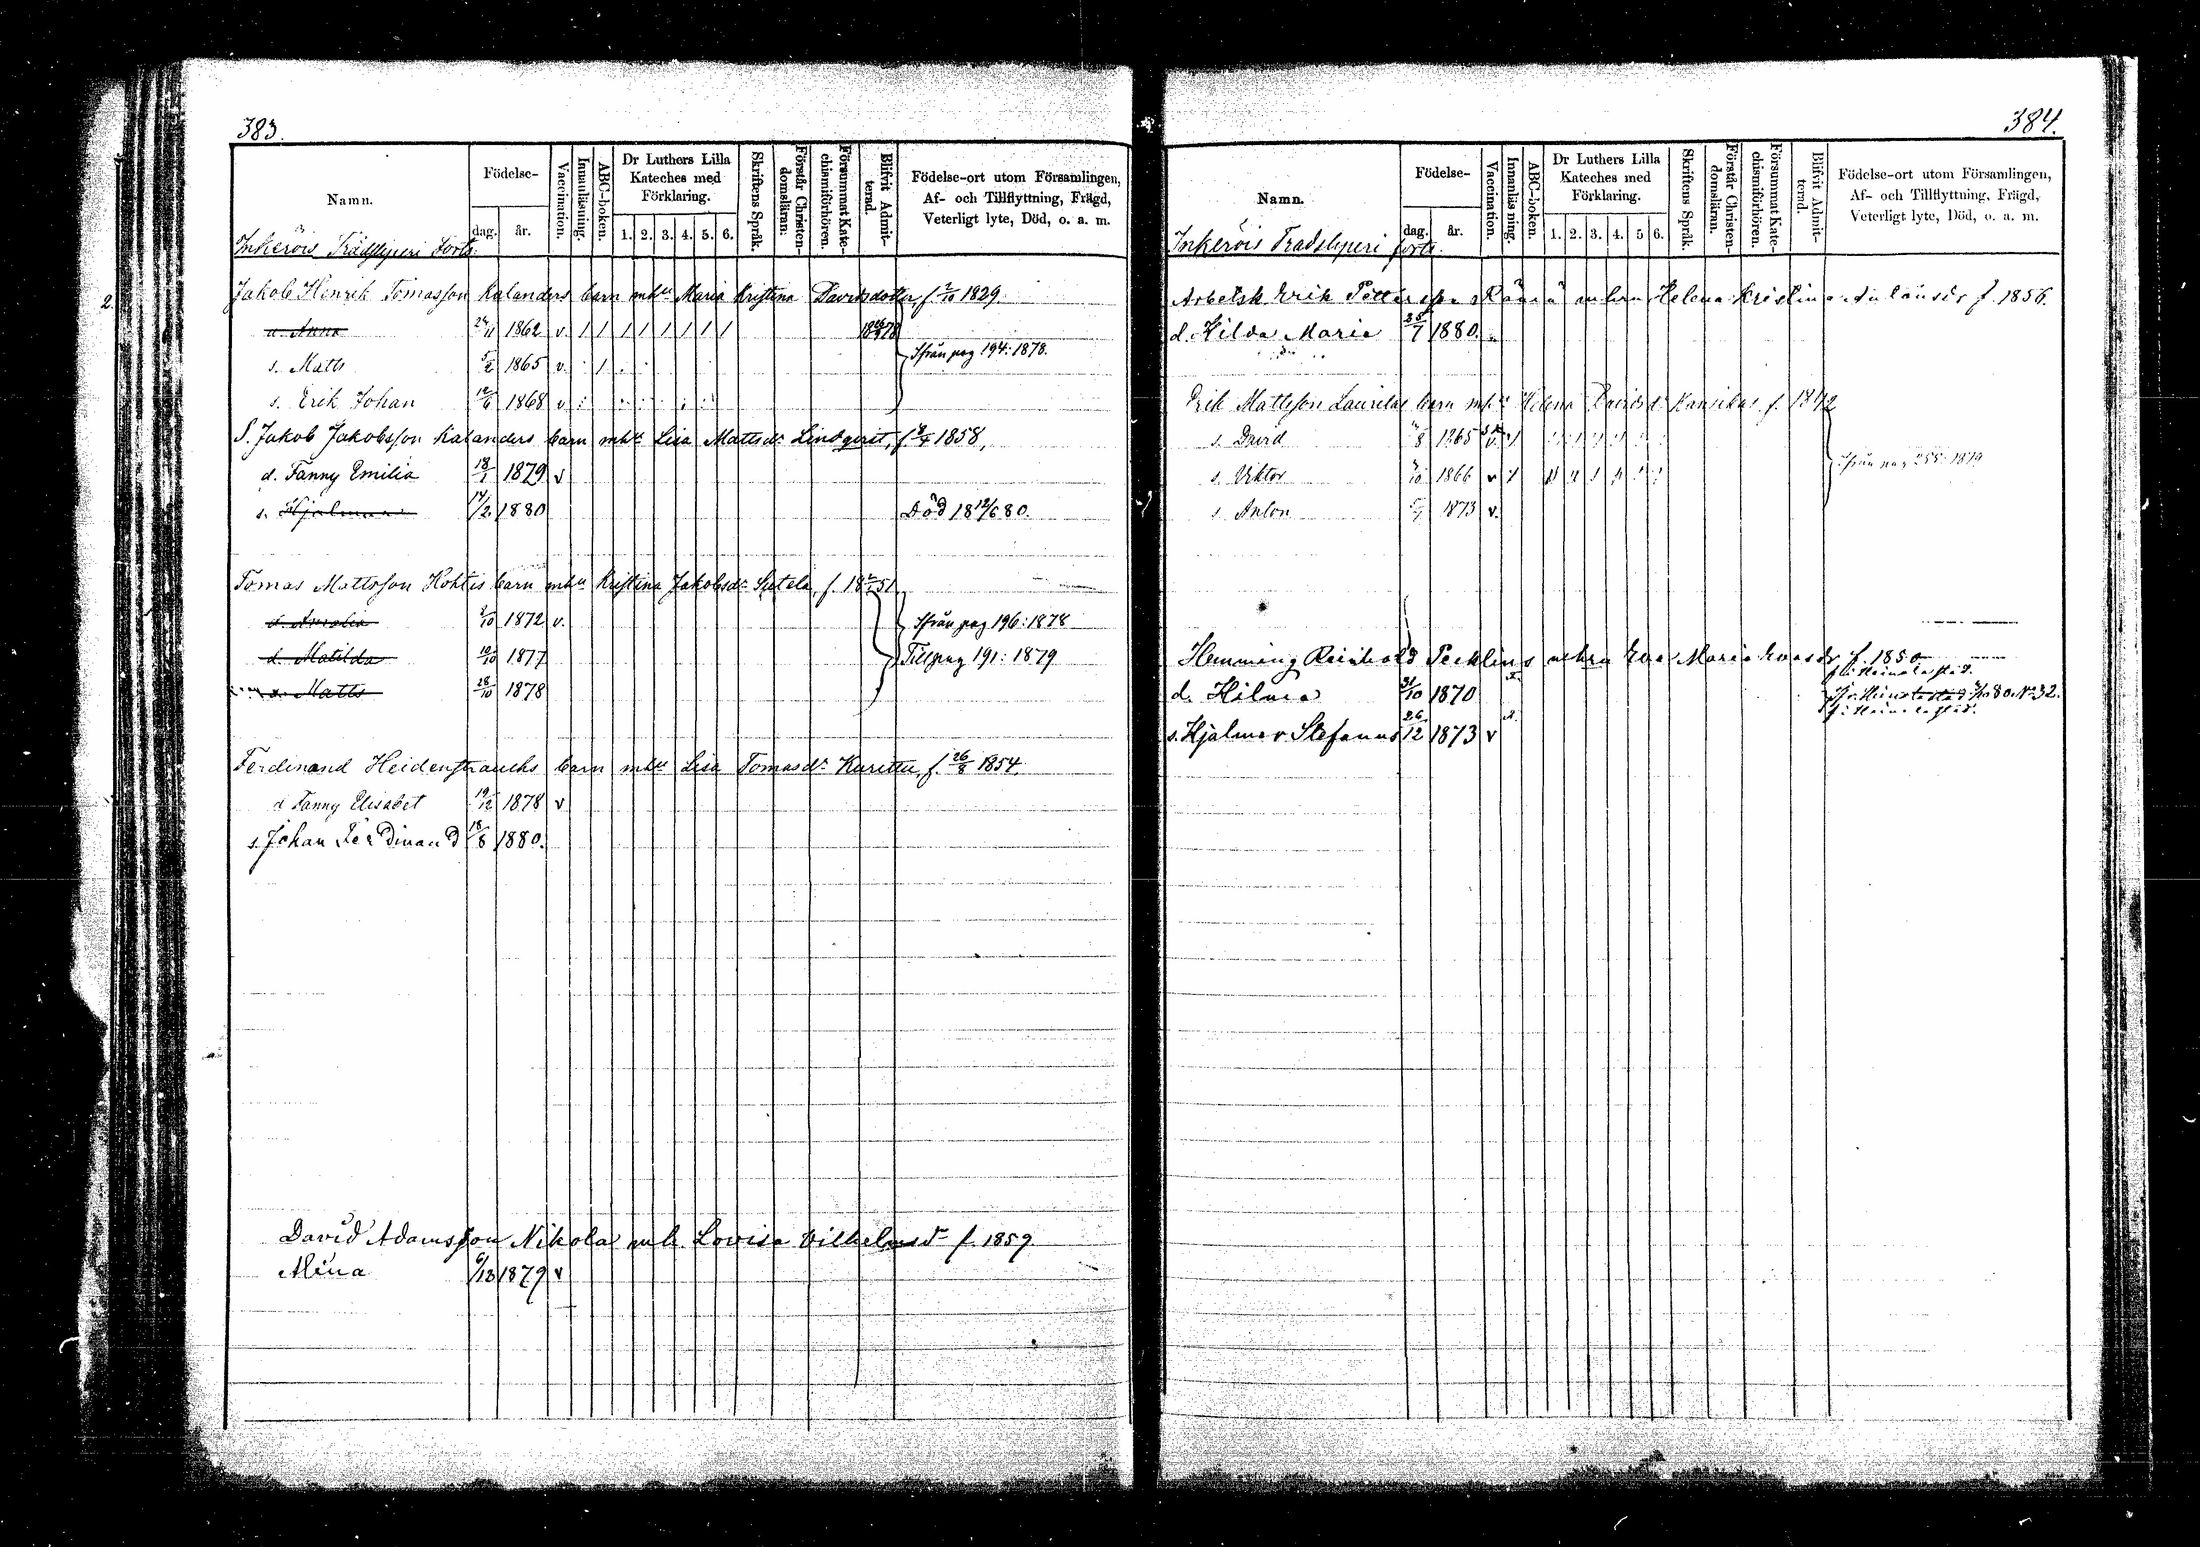 383.
Namn.
Födelse-
dag.
år.
Vaccination.
Innanläsning.
ABC-boken.
Dr Luthers Lilla
Kateches med
Förklaring.
1. 2. 3. 4. 5. 6.
Skriftens Språk.
Förstår Christen-
domsläran.
Försummat Kate-
chismiförhören.
Blifvit Admit-
terad.
Födelse-ort utom Församlingen,
Af- och Tillflyttning, Frägd,
Veterligt lyte, Död, o. a. m.
Inkerois Trädsliperi forts.
2.
Jakob Henrik Tomasson Kalanders barn mhu Maria Kristina Davidsdotter, f. 2/10 1829
d. Anna 24/11 1862 v. / / / / / / / /
s. Matts 5/2 1865 v. / Ifrån pag 194: 1878.
s. Erik Johan 12/6 1868 v
S. Jakob Jakobsson Kalanders barn mhu Lisa Mattsdr Lindqvist, f. 1858,
d. Fanny Emilia 18/1 1879 v
s. Hjalmar 14/2 1880 Död 18 12/6 80.
Tomas Mattsson Kohtis barn mhu Kristina Jakobsdr Sutela, f. 18 51
d. Amalia 2/10 1872 v. Ifrån pag 196: 1878
d. Matilda 10/10 1877 Till pag 191: 1879
s. Matts 28/10 1878
Ferdinand Heidenstrauchs barn mhu Lisa Tomasdr Kurittu, f. 26/8 1854.
d Fanny Elisabet 19/12 1878 v
s. Johan Ferdinand 18/6 1880.
David Adamsson Nikola mh Lovisa Vilhelmsdr f. 1859
Alina 6/13 1879 v
384.
Namn.
Födelse-
dag.
år.
Vaccination.
Innanläs ning.
ABC-boken.
Dr Luthers Lilla
Kateches med
Förklaring.
1. 2. 3. 4. 5 6.
Skriftens Språk.
Förstår Christen-
domsläran.
Försummat Kate-
chismiförhören.
Blifvit Admit-
terad.
Födelse-ort utom Församlingen,
Af- och Tillflyttning, Frägd,
Veterligt lyte, Död, o. a. m.
Inkerois Trädsliperi forts.
Arbetsk Erik Pettersson Rämä mhru Helena Kristina f. 1856.
d. Hilda Maria 25/7 1880.
Erik Mattsson Laurilas barn mhu Helena Davidsdr Kansikas f. 1842
s. David 1865 v.
s. Viktor 1866 v Ifrån pag 255: 1879
s. Anton 1873 v.
Hemming Reinhold Pecklins mhru Eva Maria Evasdr f. 1850
d. Hilma 31/10 1870
s. Hjalmar Stefanus 26/12 1873 v